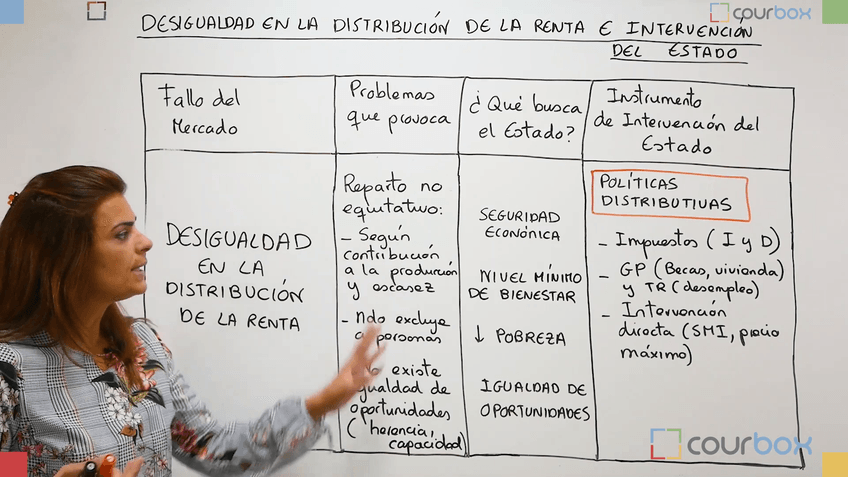 courbox
DESIGUALDAD EN LA DISTRIBUCIÓN DE LA RENTA E INTERVENCIÓN
DEL ESTADO
Fallo del
Mercado
Problemas
que provoca
¿Qué busca
el Estado?
Instrumento
de Intervención del
Estado
DESIGUALDAD
EN LA
DISTRIBUCIÓN
DE LA RENTA
Reparto no
equitativo:
- Según
contribución
a la producción
y escasez
- Mdo excluye
a personas
existe
igualdad de
oportunidades
(herencia,
capacidad)
SEGURIDAD
ECONÓMICA
NIVEL MÍNIMO
DE BIENESTAR
↓ POBREZA
IGUALDAD DE
OPORTUNIDADES
POLÍTICAS
DISTRIBUTIVAS
- Impuestos (I y D)
- GP (Becas, vivienda)
y TR (desempleo)
- Intervención
directa (SMI, precio
máximo)
courbox